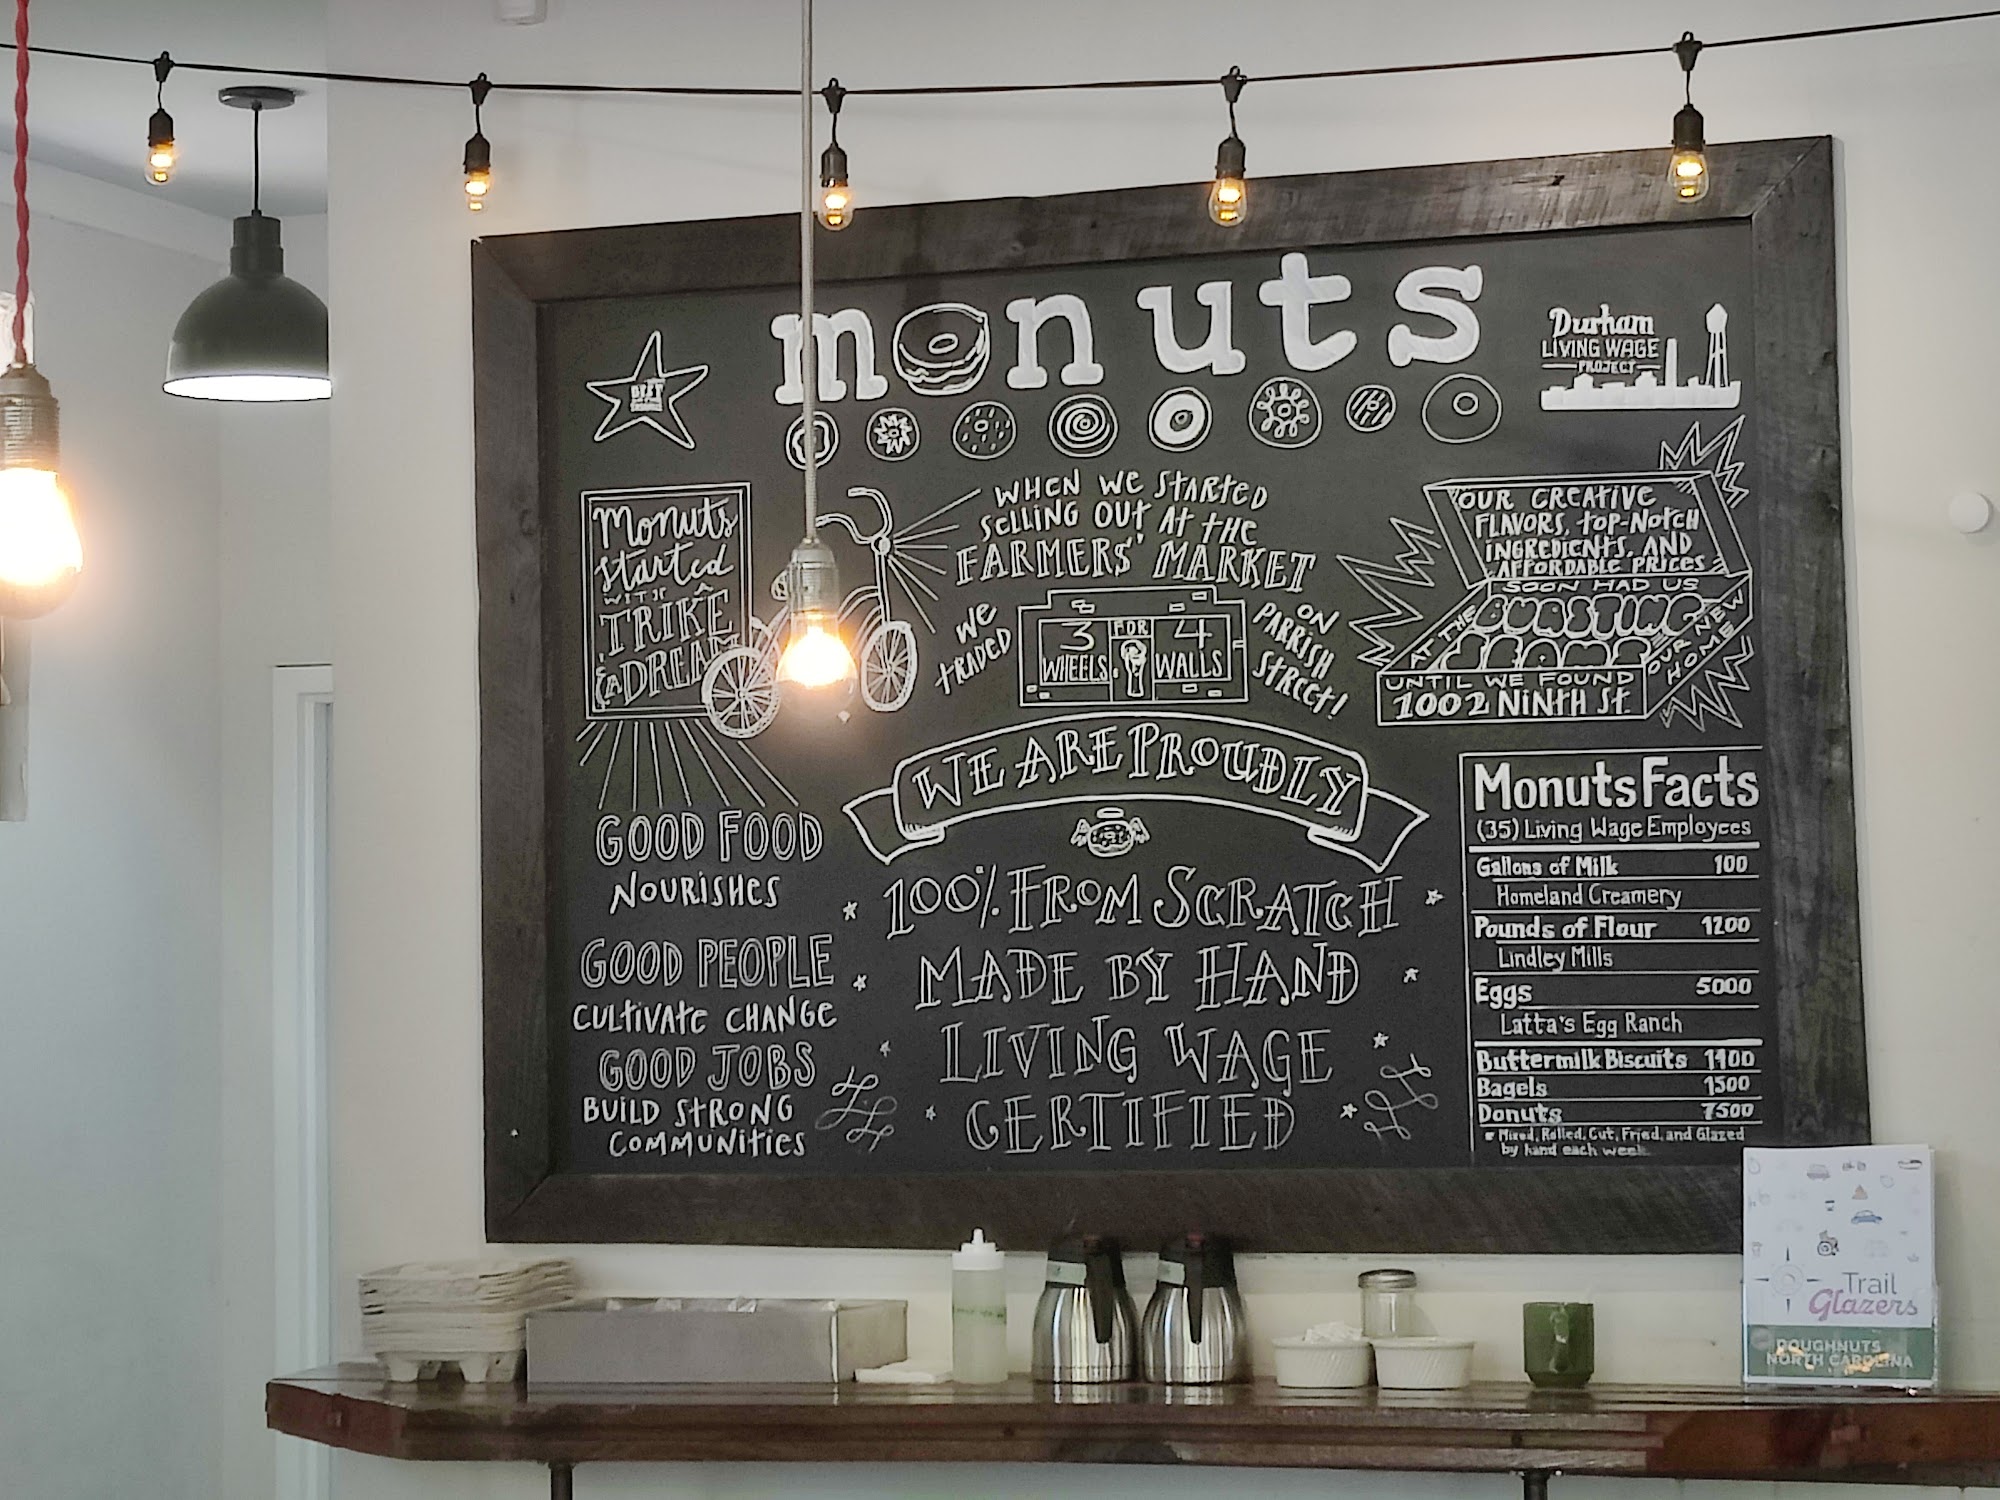 monuts
Durham
LIVING WAGE
PROJECT
Monuts
started
WITH A
TRIKE
& A DREAM
WHEN WE STARTED
SELLING OUT AT THE
FARMERS' MARKET
WE
TRADED
3 FOR 4
WHEELS WALLS
ON
PARRISH
STREET!
OUR CREATIVE
FLAVORS, TOP-NOTCH
INGREDIENTS, AND
AFFORDABLE PRICES
SOON HAD US
BURSTING
AT THE
SEAMS
OUR NEW
HOME
UNTIL WE FOUND
1002 NINTH ST.
WE ARE PROUDLY
100% FROM SCRATCH
MADE BY HAND
LIVING WAGE
CERTIFIED
GOOD FOOD
NOURISHES
GOOD PEOPLE
CULTIVATE CHANGE
GOOD JOBS
BUILD STRONG
COMMUNITIES
Monuts Facts
(35) Living Wage Employees
Gallons of Milk 100
Homeland Creamery
Pounds of Flour 1200
Lindley Mills
Eggs 5000
Latta's Egg Ranch
Buttermilk Biscuits 1100
Bagels 1500
Donuts 7500
* Mixed, Rolled, Cut, Fried, and Glazed
by hand each week
Trail
Glazers
DOUGHNUTS
NORTH CAROLINA